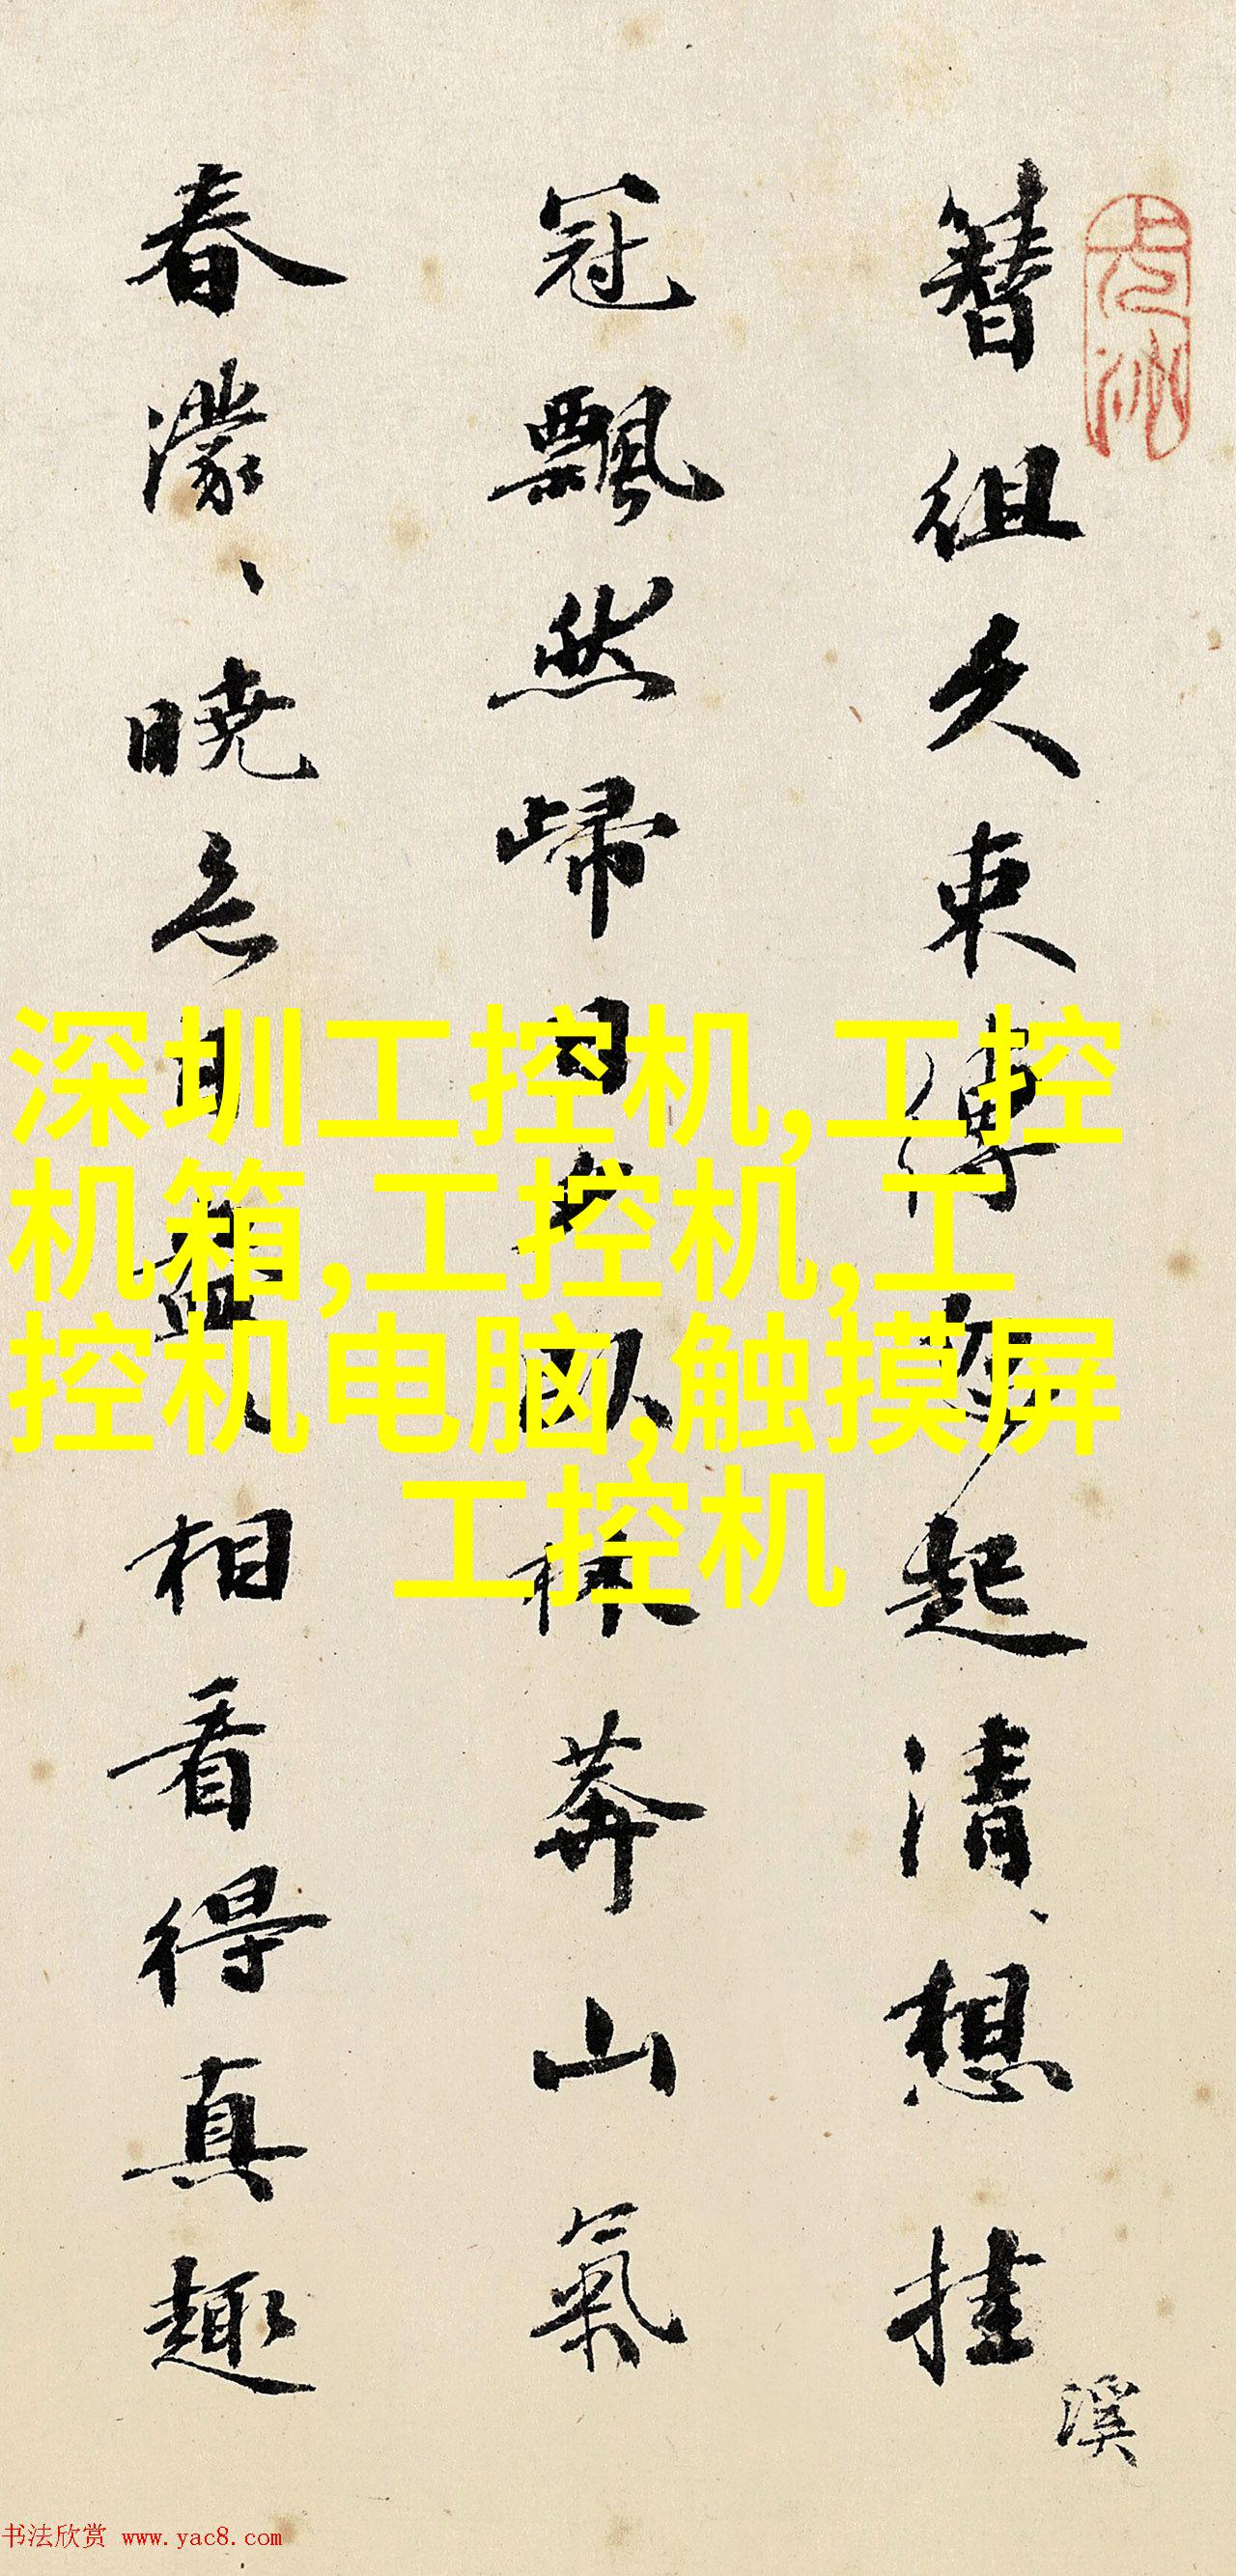 簪组久束缚每起清想挂
冠飘然归日夕卧林莽山气
春濛、晓色明益、相看得真趣
溪
深圳工控机,工控
机箱,工控机,工
控机电脑,触摸屏
工控机
书法欣赏 www.yac8.com